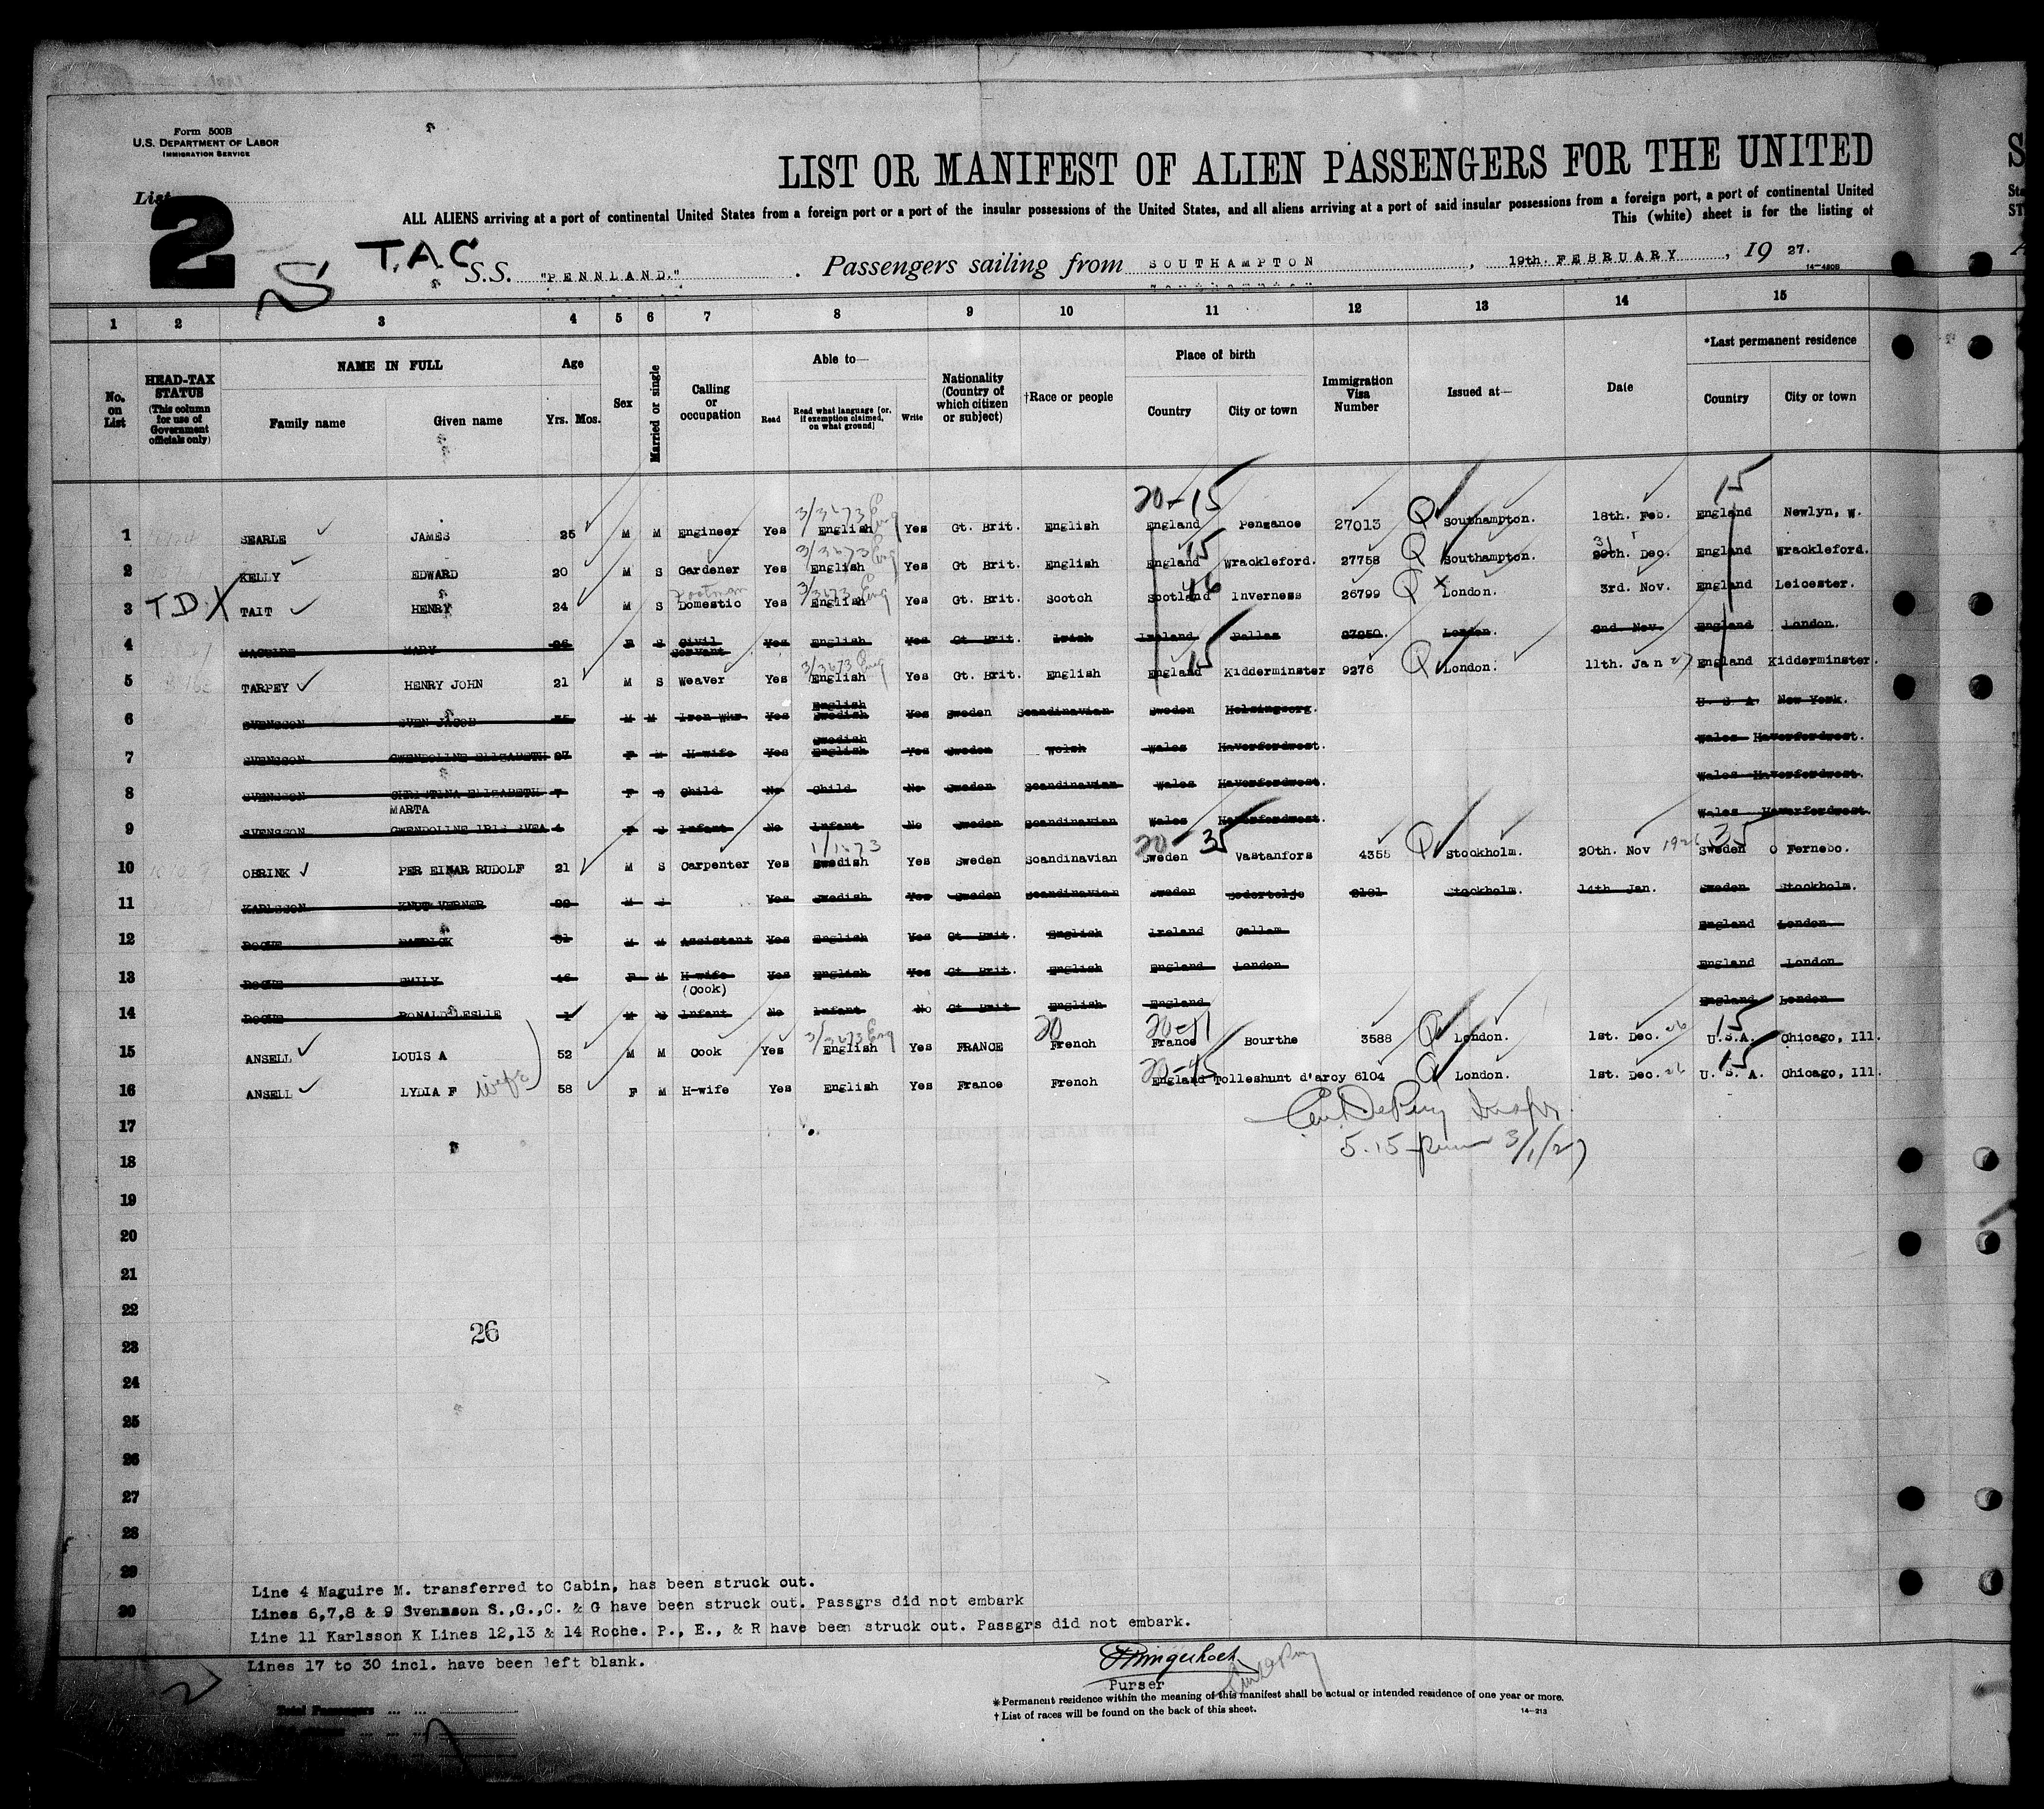 Form 500B
U.S. DEPARTMENT OF LABOR
IMMIGRATION SERVICE
List
2
LIST OR MANIFEST OF ALIEN PASSENGERS FOR THE UNITED
ALL ALIENS arriving at a port of continental United States from a foreign port or a port of the insular possessions of the United States, and all aliens arriving at a port of said insular possessions from a foreign port, a port of continental United
This (white) sheet is for the listing of
T.A.C
S.S. "PENNLAND." Passengers sailing from SOUTHAMPTON, 19th. FEBRUARY, 19 27.
14-420B
1 2 3 4 5 6 7 8 9 10 11 12 13 14 15
No. on List
HEAD-TAX STATUS (This column for use of Government officials only)
NAME IN FULL
Family name Given name
Age
Yrs. Mos.
Sex
Married or single
Calling or occupation
Able to—
Read
Read what language [or, if exemption claimed, on what ground]
Write
Nationality (Country of which citizen or subject)
†Race or people
Place of birth
Country City or town
Immigration Visa Number
Issued at—
Date
*Last permanent residence
Country City or town
20-15 15
1 SEARLE JAMES 25 M M Engineer Yes 3/3673 Eng English Yes Gt. Brit. English England Penzance 27013 Q Southampton. 18th. Feb. England Newlyn, W.
2 KELLY EDWARD 20 M S Gardener Yes 3/3673 Eng English Yes Gt Brit. English England 15 Wrackleford. 27758 Q Southampton. 31 29th. Dec. England Wrackleford.
3 T.D. X TAIT HENRY 24 M S Footman Domestic Yes 3/3673 Eng English Yes Gt. Brit. Scotch Scotland 46 Inverness 26799 Q X London. 3rd. Nov. England Leicester.
4 MAGUIRE MARY 26 F S Civil Servant Yes English Yes Gt Brit. Irish Ireland Dallas London. 2nd Nov. England London.
5 TARPEY HENRY JOHN 21 M S Weaver Yes 3/3673 Eng English Yes Gt. Brit. English England 15 Kidderminster 9276 Q London. 11th. Jan 27 England Kidderminster.
6 SVENSSON SVEN JACOB M M Iron Wkr Yes English Swedish Yes Sweden Scandinavian Sweden Helsingborg. U. S A. New York.
7 SVENSSON GWENDOLINE ELISABETH 27 F M H-wife Yes Swedish English Yes Sweden Welsh Wales Haverfordwest. Wales Haverfordwest.
8 SVENSSON CHRISTINA ELISABETH MARTA 7 F S Child No Child No Sweden Scandinavian Wales Haverfordwest. Wales Haverfordwest.
9 SVENSSON GWENDOLINE IRIS SVEA 4 F S Infant No Infant No Sweden Scandinavian Wales Haverfordwest. Wales Haverfordwest.
10 OHRINK PER EINAR RUDOLF 21 M S Carpenter Yes Swedish Yes Sweden Scandinavian 20 35 Sweden Vastanfors 4355 Q Stockholm. 20th. Nov 1926 35 Sweden O Fernebo.
11 KARLSSON KNUT VERNER 22 M S Yes Swedish Yes Sweden Scandinavian Sweden Sodertelje Stockholm. 14th Jan. Sweden Stockholm.
12 ROCHE PATRICK 51 M M Assistant Yes English Yes Gt Brit. English Ireland England London
13 ROCHE EMILY 46 F M H-wife (Cook) Yes English Yes Gt Brit. English England London England London
14 ROCHE RONALD LESLIE 1 M S Infant No Infant No Gt Brit English England England London
15 ANSELL LOUIS A 52 M M Cook Yes 3/3673 Eng English Yes FRANCE 20 French 20-11 France Bourthe 3588 Q London. 1st. Dec. 26 15 U.S.A. Chicago, Ill.
16 ANSELL LYDIA F wife 58 F M H-wife Yes English Yes France French 20-45 England Tolleshunt d'arcy 6104 Q London. 1st. Dec. 26 15 U. S. A. Chicago, Ill.
17
5.15 pm 3/1/27
18
19
20
21
22
26
23
24
25
26
27
28
29
30
Line 4 Maguire M. transferred to Cabin, has been struck out.
Lines 6,7,8 & 9 Svensson S.,G.,C. & G have been struck out. Passgrs did not embark
Line 11 Karlsson K Lines 12,13 & 14 Roche. P., E., & R have been struck out. Passgrs did not embark.
Lines 17 to 30 incl. have been left blank.
Purser
2
Total Passengers
*Permanent residence within the meaning of this manifest shall be actual or intended residence of one year or more.
†List of races will be found on the back of this sheet.
14-213